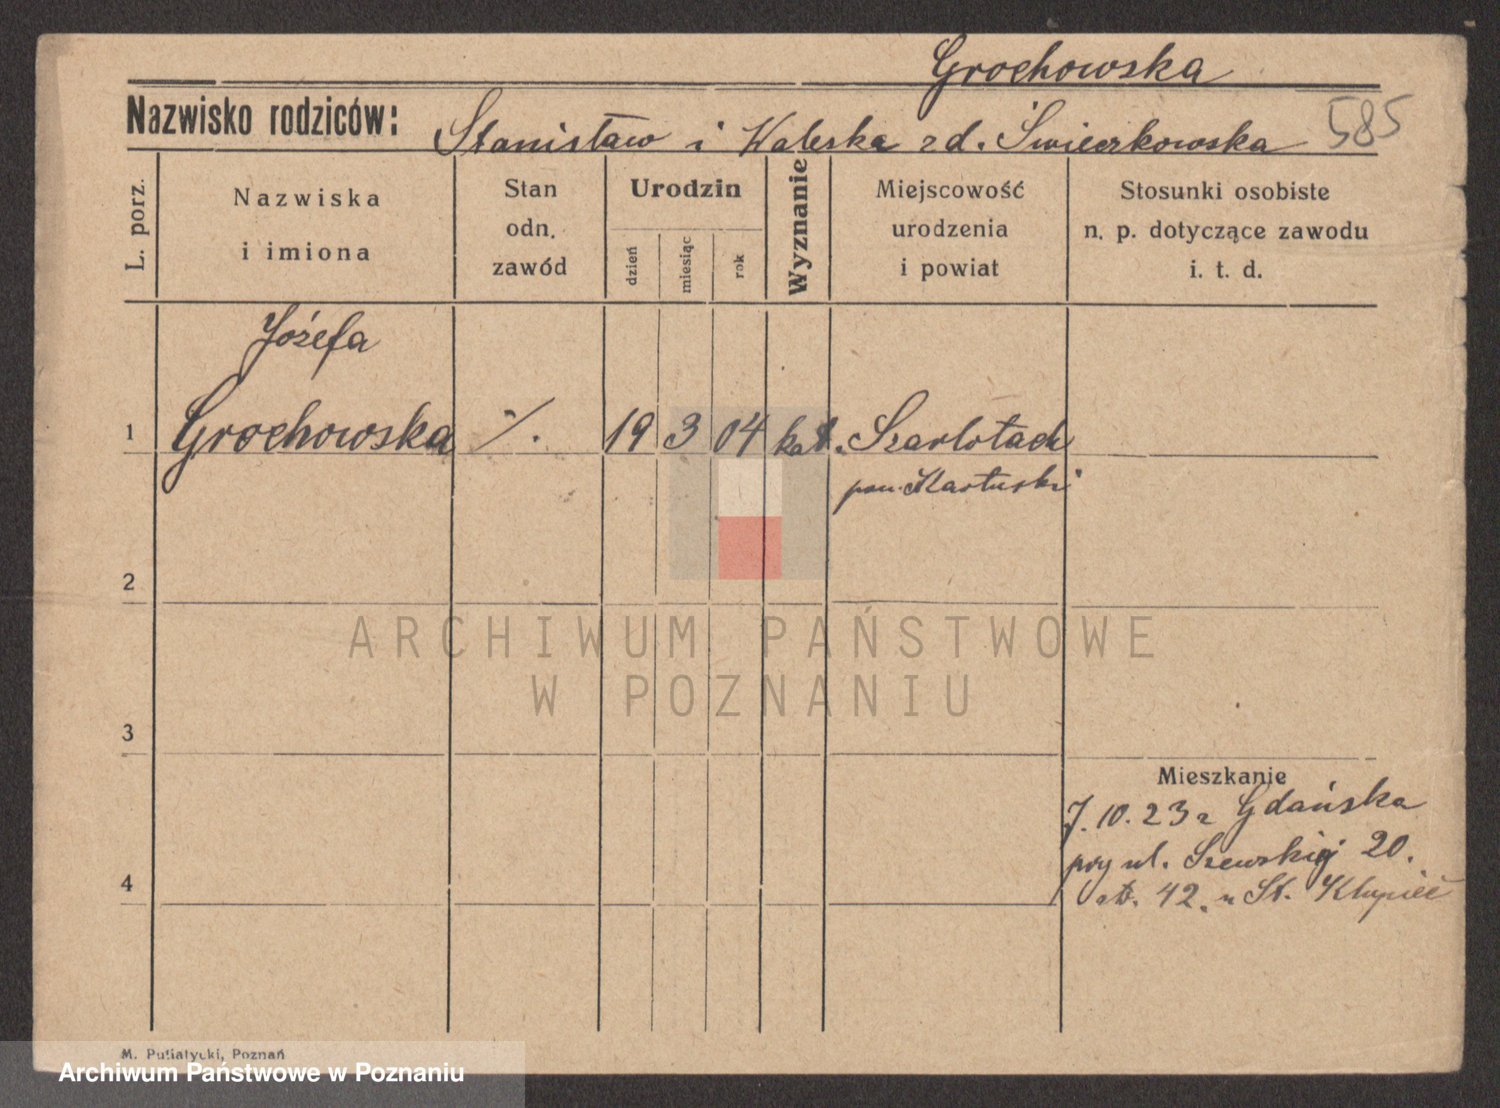 Grochowska
Nazwisko rodziców: Stanisław i Waleska zd. Świeczkowska 585
L. porz.
Nazwiska i imiona
Stan odn. zawód
Urodzin
dzień
miesiąc
rok
Wyznanie
Miejscowość urodzenia i powiat
Stosunki osobiste n. p. dotyczące zawodu i. t. d.
Józefa
1 Grochowska ./. 19 3 04 kat. Szarlotach
pow. Kartuski
2
3
4
ARCHIWUM PAŃSTWOWE
W POZNANIU
Mieszkanie
7. 10. 23 z Gdańska
przy ul. Szewskiej 20.
42. u St.
M. Putiatycki, Poznań
Archiwum Państwowe w Poznaniu